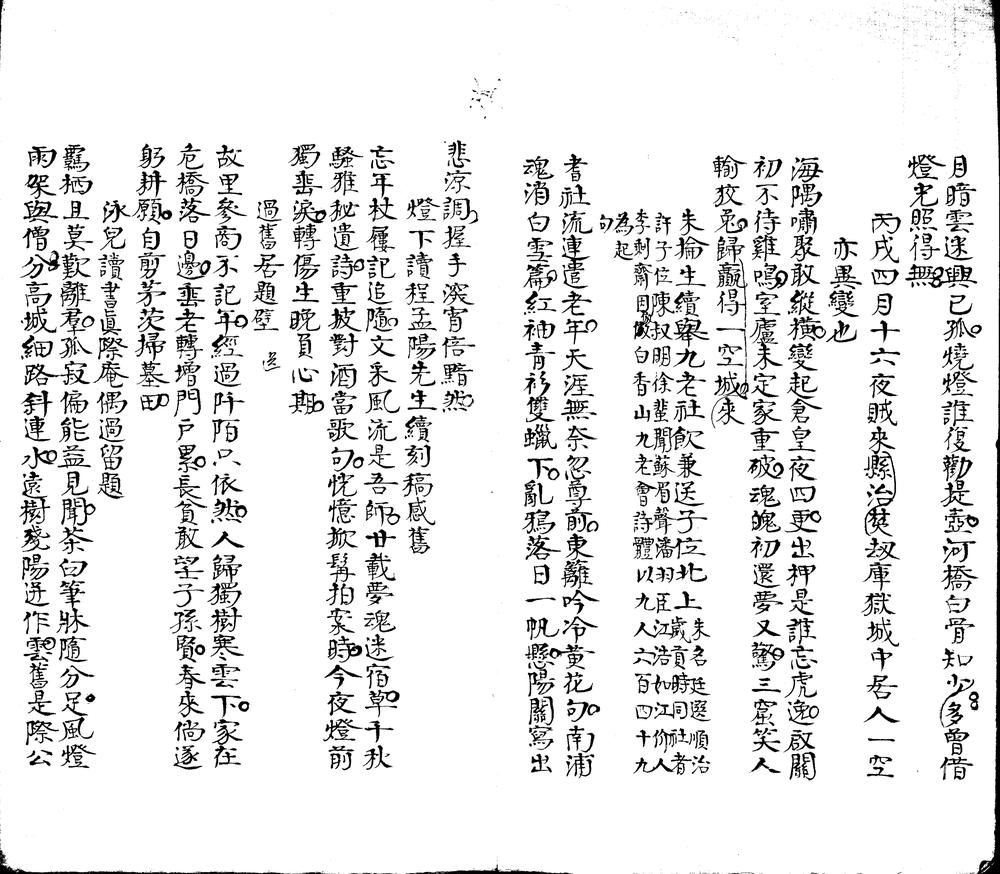 月暗雲迷興已孤燒燈誰復勸提壺河橋白骨知少多曾借
燈光照得無
丙戌四月十六夜賊來縣治焚刼庫獄城中居人一空
亦異變也
海隅嘯聚敢縱橫變起倉皇夜四更出押是誰忘虎逸啟關
初不待雞鳴室廬未定家重破魂魄初還夢又驚三窟笑人
輸狡兔歸贏得一空城來
朱掄生續舉九老社飲兼送子位北上朱名廷選順治
歲貢時同社者
許子位陳叔明徐蜚聞蘇眉聲潘羽臣江浩如江仰人
李剩齋因倣白香山九老會詩體以九人六百四十九
為起
句
耆社流連遣老年天涯無奈忽尊前東籬吟冷黃花句南浦
魂消白雪篇紅袖青衫雙蠟下亂鴉落日一帆懸陽關寫出
悲凉調握手深宵倍黯然
燈下讀程孟陽先生續刻稿感舊
忘年杖屨記追隨文采風流是吾師廿載夢魂迷宿草千秋
騷雅秘遺詩重披對酒當歌句恍憶掀髯拍案時今夜燈前
獨垂淚轉傷生晚負心期
過舊居題壁
故里參商不記年經過阡陌只依然人歸獨樹寒雲下家在
危橋落日邊垂老轉增門戶累長貧敢望子孫賢春來倘遂
躬耕願自剪茅茨掃墓田
泳兒讀書眞際庵偶過留題
羈栖且莫歎離羣孤寂偏能益見聞茶臼筆牀隨分足風燈
雨架與僧分高城細路斜連水遠樹殘陽迸作雲舊是際公